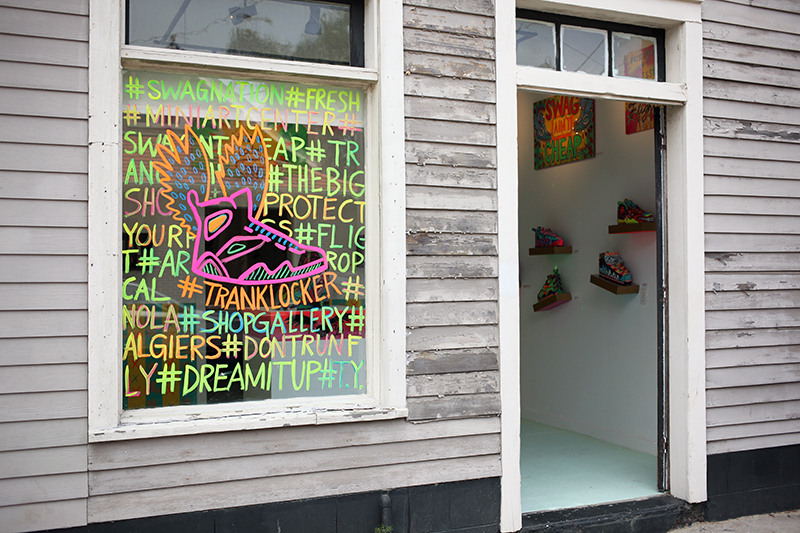 #SWAGNATION#FRESH
#MINIARTCENTER#
SWAG
CHEAP#TR
#THEBIG
PROTECT
YOUR
#FLIG
#AR
ROP
CAL
#TRANKLOCKER#
NOLA#SHOPGALLERY#
ALGIERS#DONTRUNF
LY#DREAMITUP#T.Y.
SWAG
CHEAP